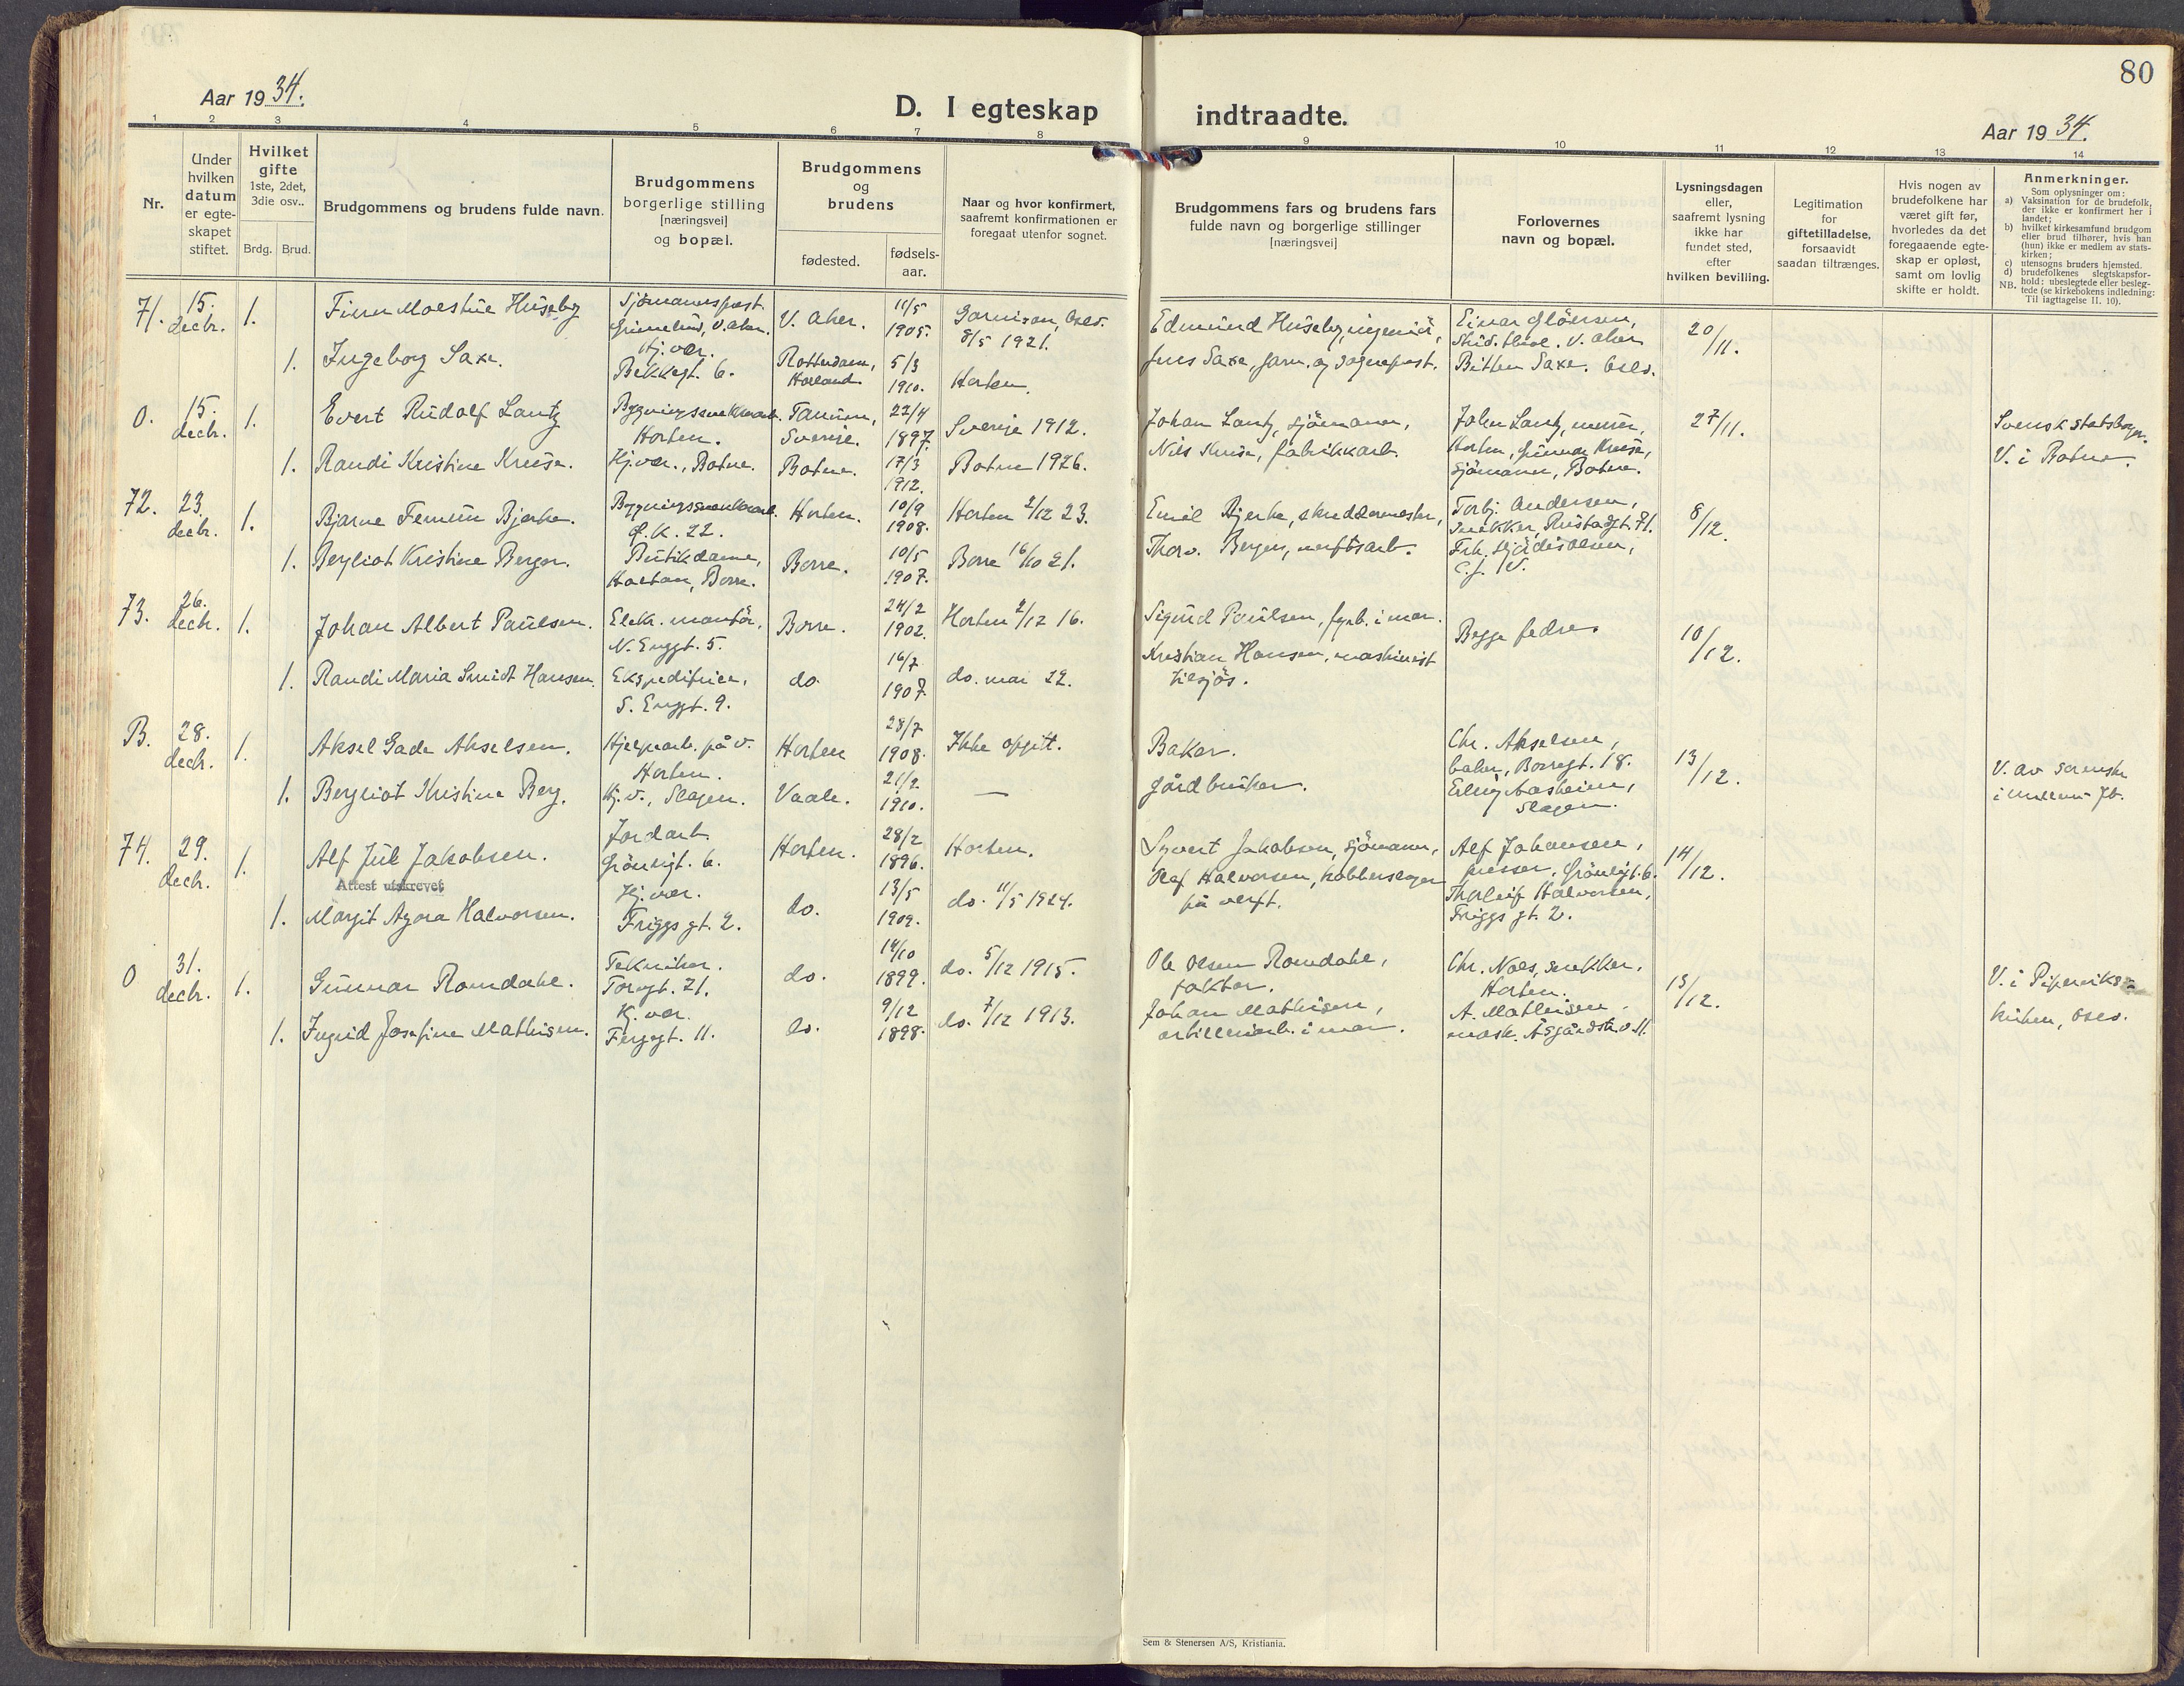 80
Aar 1934.
D. I egteskap indtraadte.
Aar 1934.
1 2 3 4 5 6 7 8 9 10 11 12 13 14
Nr.
Under hvilken datum er egte-skapet stiftet.
Hvilket gifte
1ste, 2det, 3die osv..
Brdg. Brud.
Brudgommens og brudens fulde navn.
Brudgommens borgerlige stilling [næringsvei] og bopæl.
Brudgommens og brudens
fødested.
fødsels-aar.
Naar og hvor konfirmert, saafremt konfirmationen er foregaat utenfor sognet.
Brudgommens fars og brudens fars fulde navn og borgerlige stillinger [næringsvei]
Forlovernes navn og bopæl.
Lysningsdagen eller, saafremt lysning ikke har fundet sted, efter hvilken bevilling.
Legitimation for giftetilladelse, forsaavidt saadan tiltrænges.
Hvis nogen av brudefolkene har været gift før, hvorledes da det foregaaende egte-skap er opløst, samt om lovlig skifte er holdt.
Anmerkninger.
Som oplysninger om:
a) Vaksination for de brudefolk, der ikke er konfirmert her i landet;
b) hvilket kirkesamfund brudgom eller brud tilhører, hvis han (hun) ikke er medlem av stats-kirken;
c) utensogns bruders hjemsted.
d) brudefolkenes slegtskapsfor-hold: ubeslegtede eller besleg-tede (se kirkebokens indledning: Til iagttagelse II. 10).
NB.
71. 15. decbr. 1. Finn Moestue Huseby Sjömannsprest. V. Aker. 11/5 1905. Garnison, Oslo. 8/5 1921. Edmund Huseby, ingeniör, Einar Glöersen, stud. theol. V. Aker 20/11.
Hj.vær.
1. Ingeborg Saxe. Bekkegt. 6. Rotterdam, Holland. 5/3 1910. Horten. Jens Saxe, garn. og sogneprest. Bitten Saxe. Oslo.
O. 15. decbr. 1. Evert Rudolf Lantz Horten. Tanum, Sverige. 22/4 1897. Sverige 1912. Johan Lantz, sjömann, John Lantz, murer, Horten, Gunnar Kruse, sjömann, Botne. 27/11. Svensk statsborger.
1. Randi Kristine Kruse. Hj.vær., Botne. Botne. 17/3 1912. Botne 1926. Nils Kruse, fabrikkarb. V. i Botne.
72. 23. decbr. 1. Bjarne Bjerke. Horten. 10/9 1908. Horten 2/12 23. Emil Bjerke, Torbj. Andersen, snekker, 8/12.
1. Bergliot Kristine Berger. Butikdame, Borre. Borre. 10/5 1907. Borre 16/10 21. Thorv. Berger, verftsarb. Frk.
73. 26. decbr. 1. Johan Albert Paulsen. Elekr. montör, N. Enggt. 5. Borre. 24/2 1902. Horten 2/12 16. Sigurd Paulsen, fyrb. i mar. Begge fedre. 10/12.
1. Randi Maria Smidt Hansen. Ekspeditrice, S. Enggt. 9. do 16/7 1907. do. mai 22. Kristian Hansen, maskinist tilsjös.
B. 28. decbr. 1. Aksel Gade Akselsen. Hjelpearb. på v. Horten. Horten 28/7 1908. Ikke opgitt. Baker. Chr. Akselsen, baker, Borregt. 18. 13/12.
1. Bergliot Kristine Berg. Hj.v., Slagen. Vaale. 21/2 1910. — Gårdbruker. Erling Aasheim, Slagen. V. av
74. 29. decbr. 1. Alf Jul Jakobsen. Jordarb. Grönligt. 6. Horten. 28/2 1896. Horten. Syvert Jakobsen, sjömann, Alf Johansen, presser, Grönligt. 6. 14/12.
Attest utskrevet
1. Margit Agora Halvorsen. Hj.vær. Friggs gt. 2. do. 13/5 1909. do. 11/5 1924. Olaf Halvorsen, kobberslager på verft. Thorleif Halvorsen, Friggs gt. 2.
O 31. decbr. 1. Gunnar Romdahl. Tekniker. Torggt. 21. do. 14/10 1899. do. 5/12 1915. Ole Olsen Romdahl, faktor. Chr. Noes, snekker, Horten. 15/12. V. i Piperviks-
1. Ingrid Josefine Mathisen. Hj. vær. Fergegt. 11. do. 9/12 1898. do. 7/12 1913. Johan Mathisen, artilleriarb. i mar. A. Mathisen, mask. kirken, Oslo.
Sem & Stenersen A/S, Kristiania.